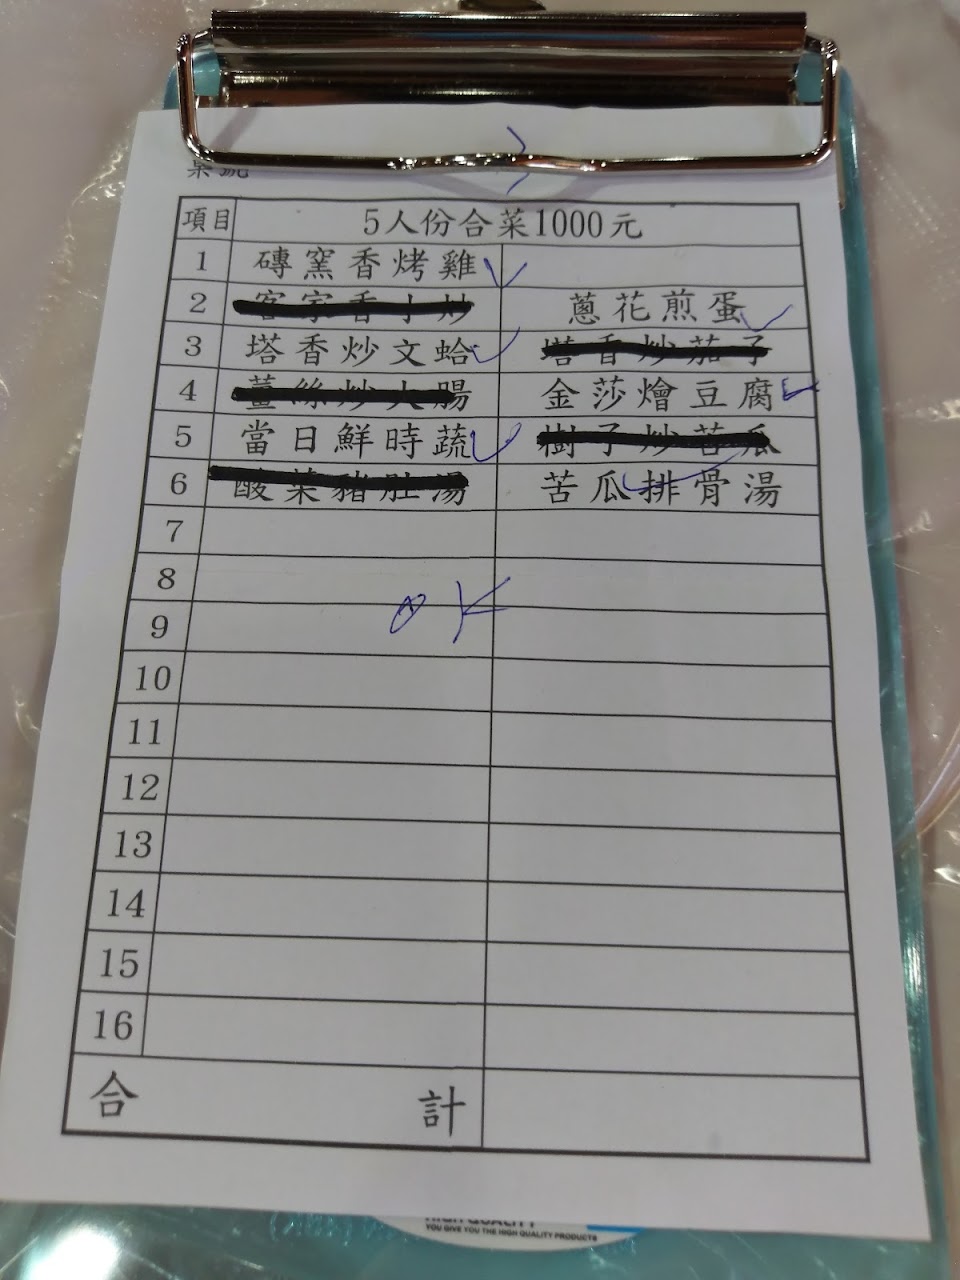 桌號
項目 5人份合菜1000元
1 磚窯香烤雞
2 客家香小炒 蔥花煎蛋
3 塔香炒文蛤 塔香炒茄子
4 薑絲炒大腸 金莎燴豆腐
5 當日鮮時蔬 樹子炒苦瓜
6 酸菜豬肚湯 苦瓜排骨湯
7
8
OK
9
10
11
12
13
14
15
16
合計
HIGH QUALITY
YOU GIVE YOU THE HIGH QUALITY PRODUCTS